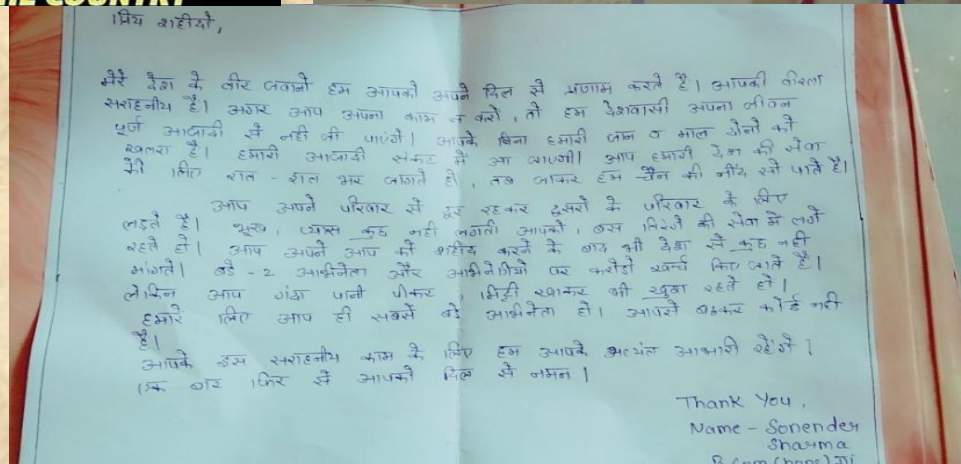 THE COUNTRY
प्रिय शहीदो,
मेरे देश के वीर जवानो हम आपको अपने दिल से प्रणाम करते है। आपकी वीरता
सराहनीय है। अगर आप अपना काम न करो, तो हम देशवासी अपना जीवन
पूर्ण आजादी से नही जी पाएंगे। आपके बिना हमारी जान व माल दोनो को
खतरा है। हमारी आजादी संकट में आ जाएगी। आप हमारी देश की सेवा
के लिए रात - रात भर जागते हो, तब जाकर हम चैन की नींद सो पाते है।
आप अपने परिवार से दूर रहकर दूसरो के परिवार के लिए
लड़ते है। भूख, प्यास कुछ नही लगती आपको, बस तिरंगे की सेवा मे लगे
रहते हो। आप अपने आप को शहीद करने के बाद भी देश से कुछ नही
मांगते। बडे - २ अभिनेता और अभिनेत्रियो पर करोडो खर्च किए जाते है।
लेकिन आप गंदा पानी पीकर, मिट्टी खाकर भी खुश रहते हो।
हमारे लिए आप ही सबसे बडे अभिनेता हो। आपसे बढकर कोई नही
है।
आपके इस सराहनीय काम के लिए हम आपके अत्यंत आभारी रहेंगे।
एक बार फिर से आपको दिल से नमन।
Thank You,
Name - Sonender
Sharma
B.Com (hons) III